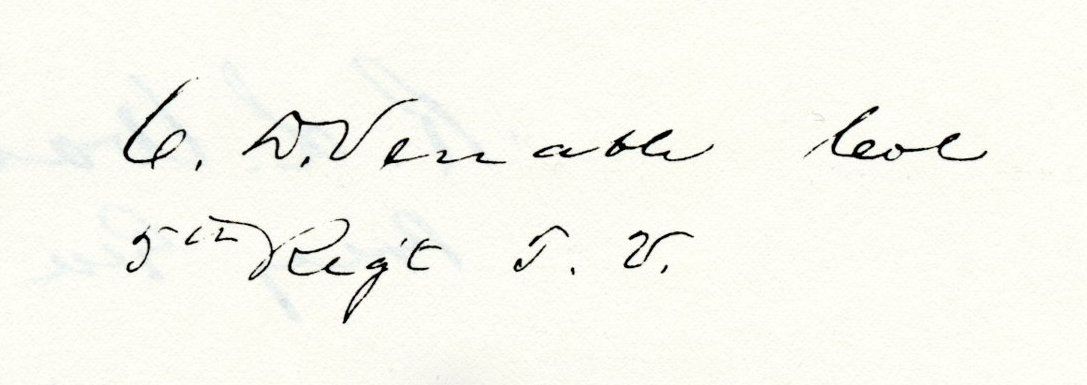 C. D. Venable Col
5th Reg't T. V.